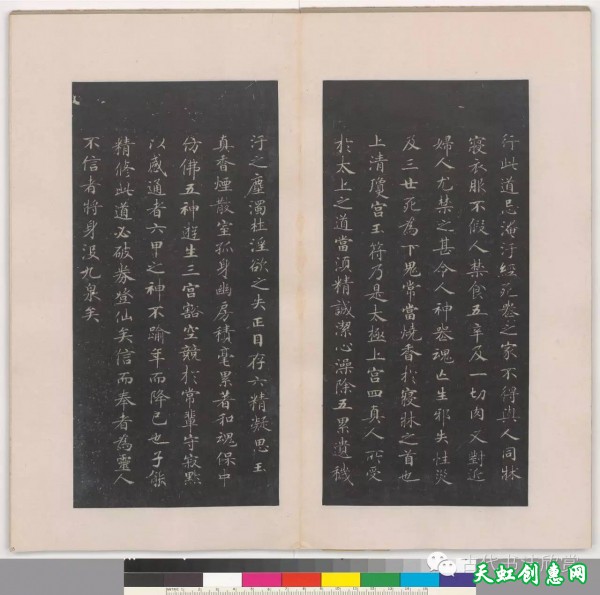 行此道忌淹汙経死喪之家不得與人同牀
寝衣服不假人禁食五辛及一切肉又對近
婦人尤禁之甚令人神喪魂亡生邪失性災
及三世死為下鬼常當燒香於寝牀之首也
上清瓊宫玉符乃是太極上宫四真人所受
於太上之道當湏精誠潔心澡除五累遺穢
汙之塵濁杜淫欲之失正目存六精凝思玉
真香煙散室孤身幽房積毫累著和魂保中
仿佛五神遊生三宫豁空競於常輩守寂默
以感通者六甲之神不踰年而降己也子能
精修此道必破券登仙矣信而奉者為靈人
不信者將身没九泉矣
古代书法欣赏
天虹创惠网